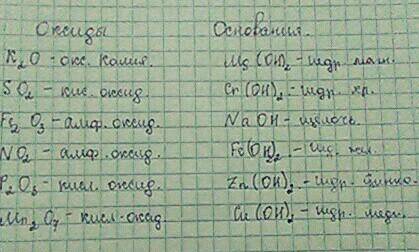 Оксиды Основания.
K₂O - окс. калия. Mg(OH)₂ - гидр. магн.
SO₂ - кис. оксид. Cr(OH)₂ - гидр. хр.
Fe₂O₃ - амф. оксид. NaOH - щёлочь.
NO₂ - амф. оксид. Fe(OH)₂ - гид. жел.
P₂O₅ - кисл. оксид. Zn(OH)₂ - гидр.
Mn₂O₇ - кисл. оксид. Cu(OH)₂ - гидр. меди.